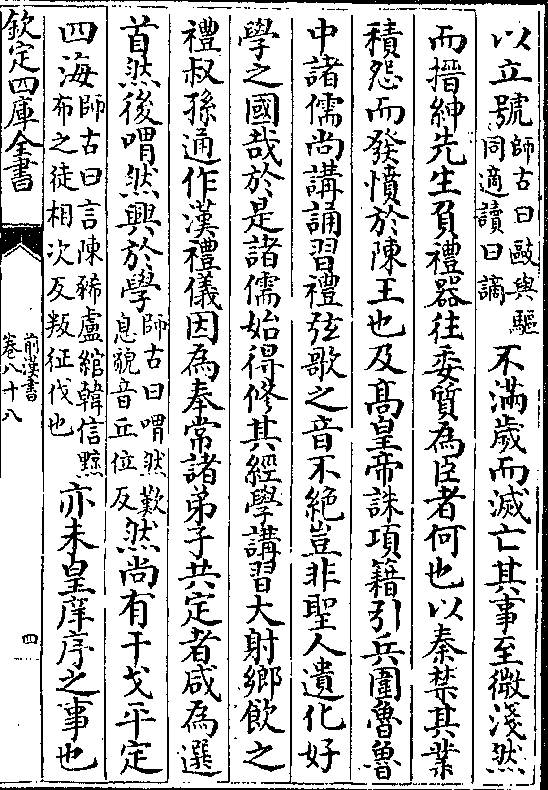 以立號師古曰敺與驅同適讀曰謫不滿歲而滅亡其事至微淺然
而搢紳先生負禮器往委質為臣者何也以秦禁其業
積怨而發憤於陳王也及髙皇帝誅項籍引兵圍魯魯
中諸儒尚講誦習禮弦歌之音不絶豈非聖人遺化好
學之國哉於是諸儒始得修其經學講習大射鄉飲之
禮叔孫通作漢禮儀因為奉常諸弟子共定者咸為選
首然後喟然興於學師古曰喟然歎息貌音丘位反然尚有干戈平定
四海師古曰言陳豨盧綰韓信黥布之徒相次反叛征伐也亦未皇庠序之事也
欽定四庫全書
前漢書
卷八十八
四